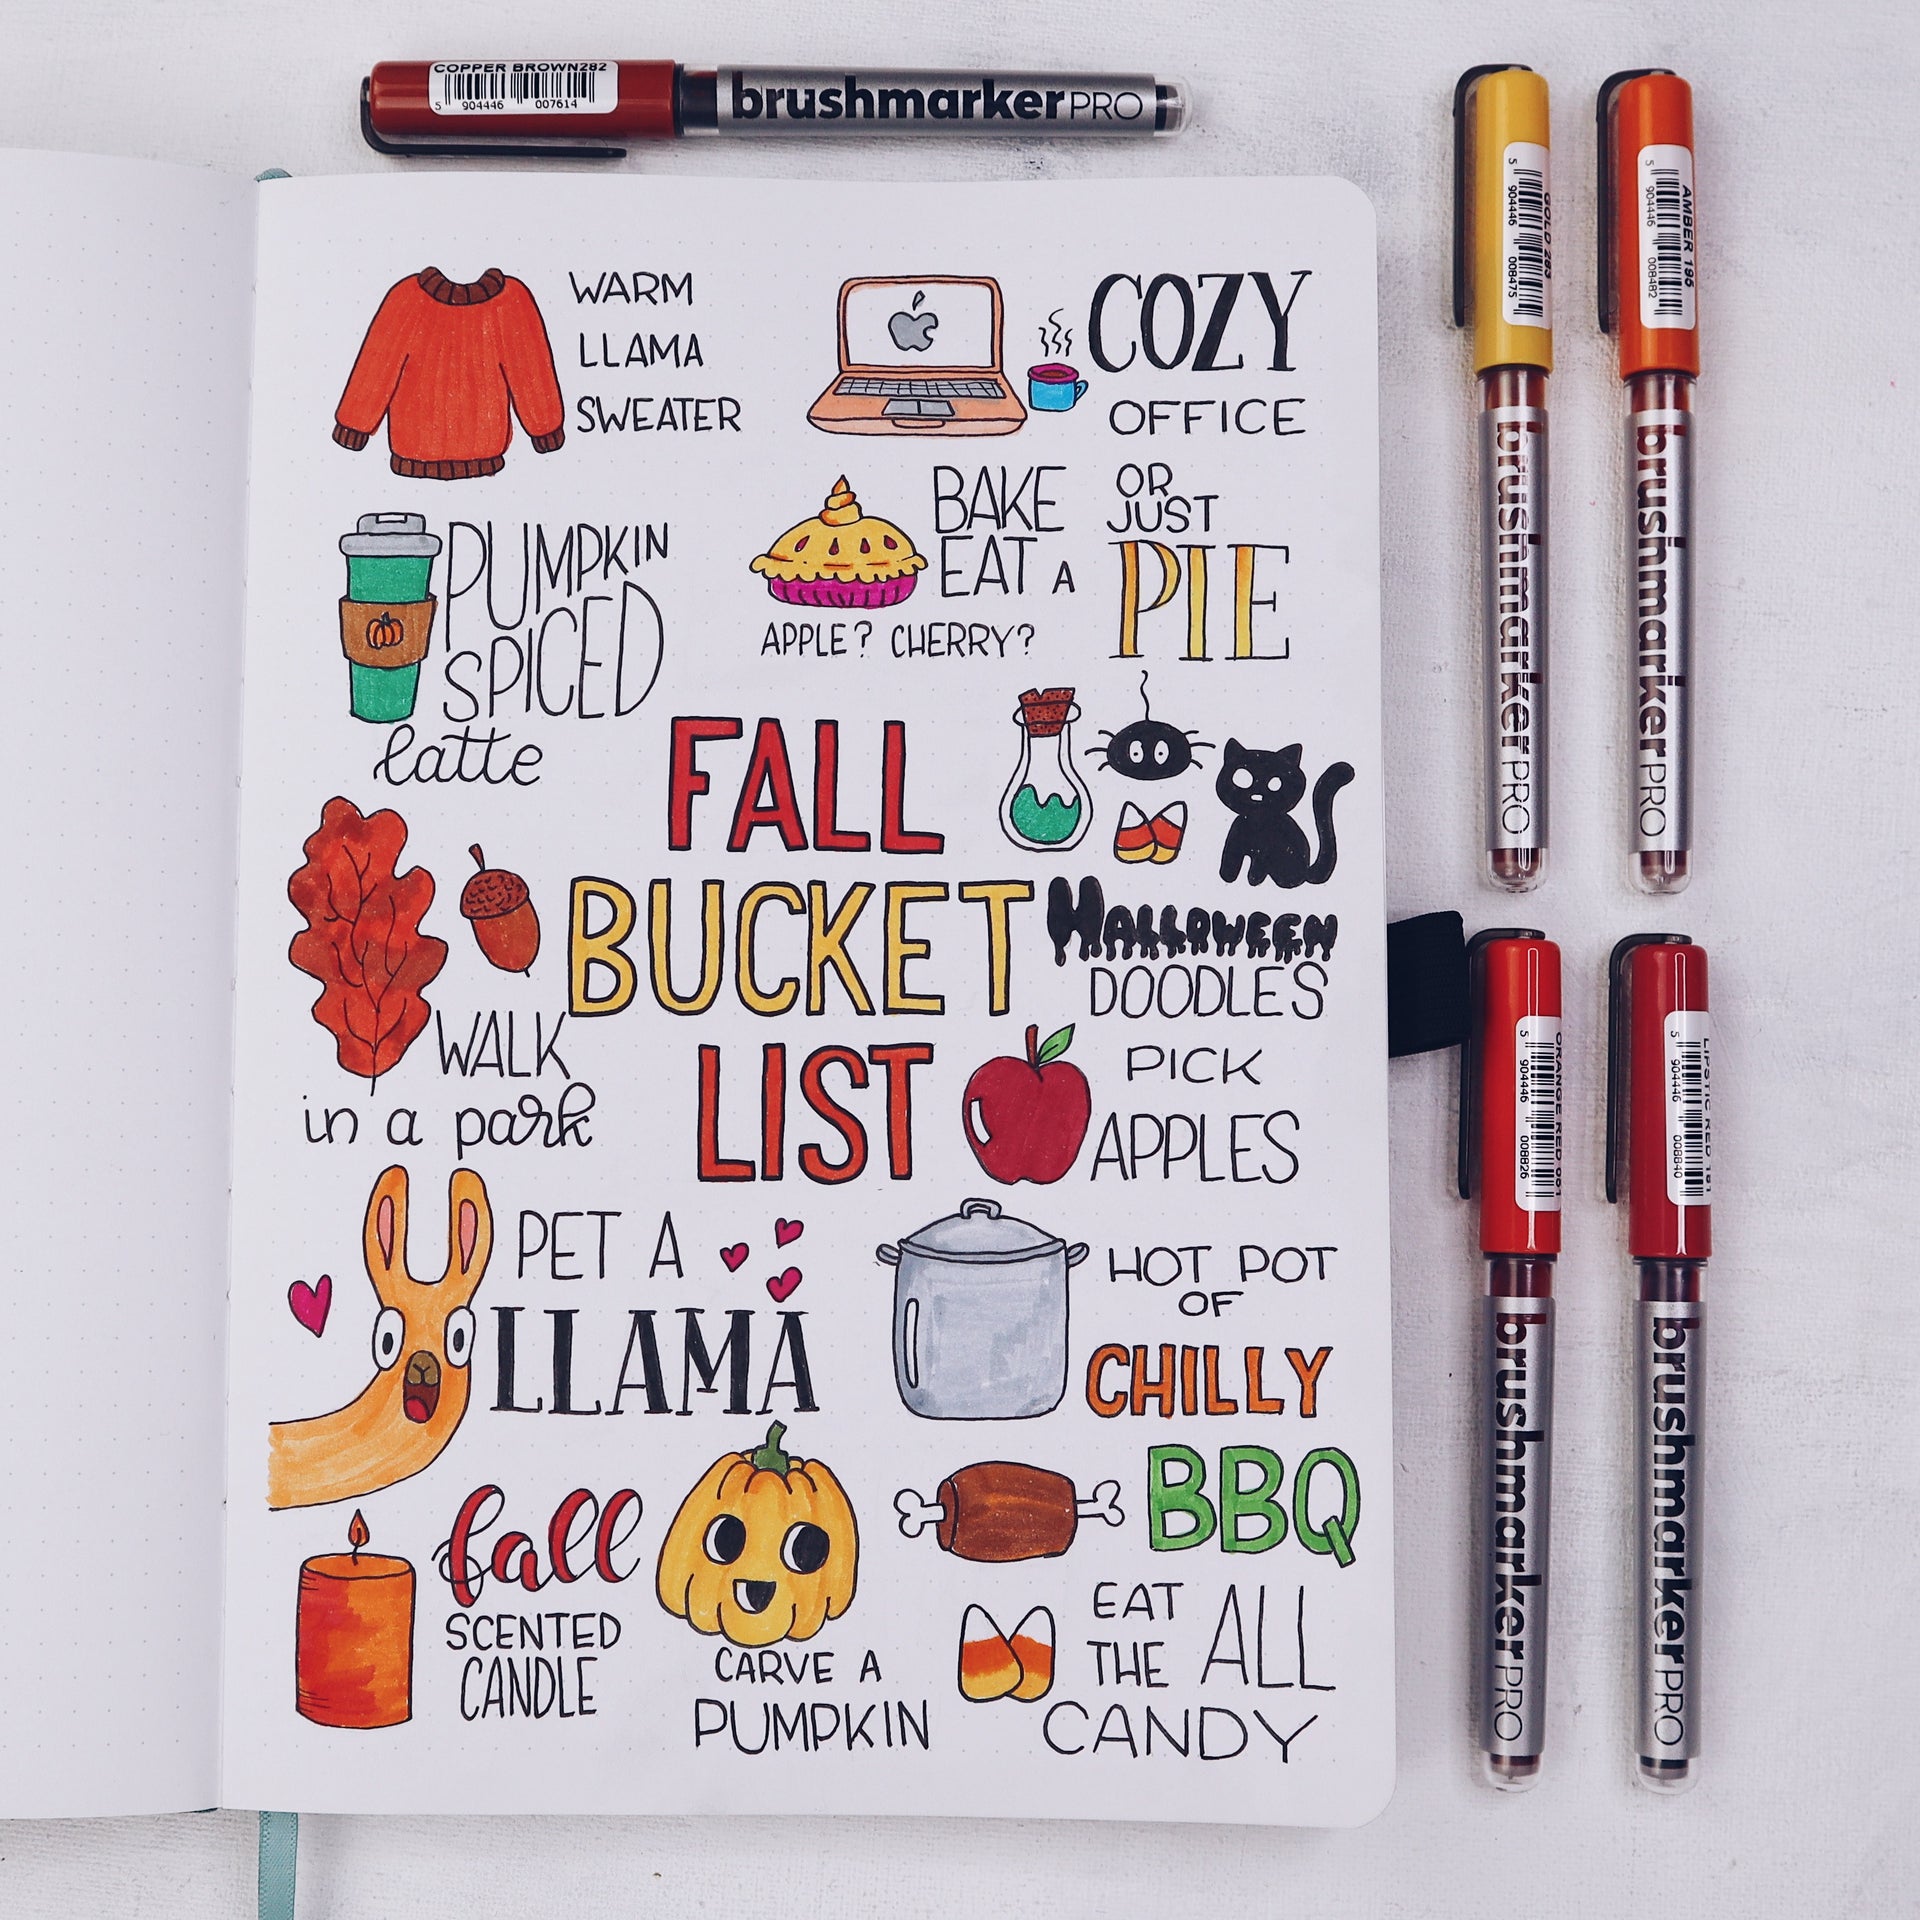 COPPER BROWN282
5 904446 007614
brushmarkerPRO
WARM
LLAMA
SWEATER
COZY
OFFICE
PUMPKIN
SPICED
latte
BAKE OR JUST
EAT A PIE
APPLE? CHERRY?
FALL
BUCKET
LIST
HALLOWEEN
DOODLES
WALK
in a park
PICK
APPLES
PET A
LLAMA
HOT POT
OF
CHILLY
fall
SCENTED
CANDLE
CARVE A
PUMPKIN
BBQ
EAT
THE ALL
CANDY
GOLD 283
5 904446 008475
brushmarkerPRO
AMBER 196
5 904446 008482
brushmarkerPRO
ORANGE RED 061
5 904446 008826
brushmarkerPRO
LIPSTIC RED 161
5 904446 008840
brushmarkerPRO